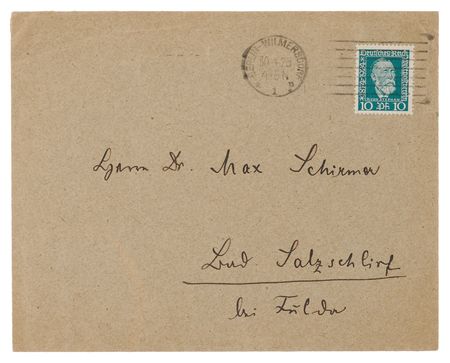 BERLIN-WILMERSDORF
1
Deutsches Reich
10 Pf 10
Herrn Dr. Max Schirmer
Bad Salzschlirf
bei Fulda